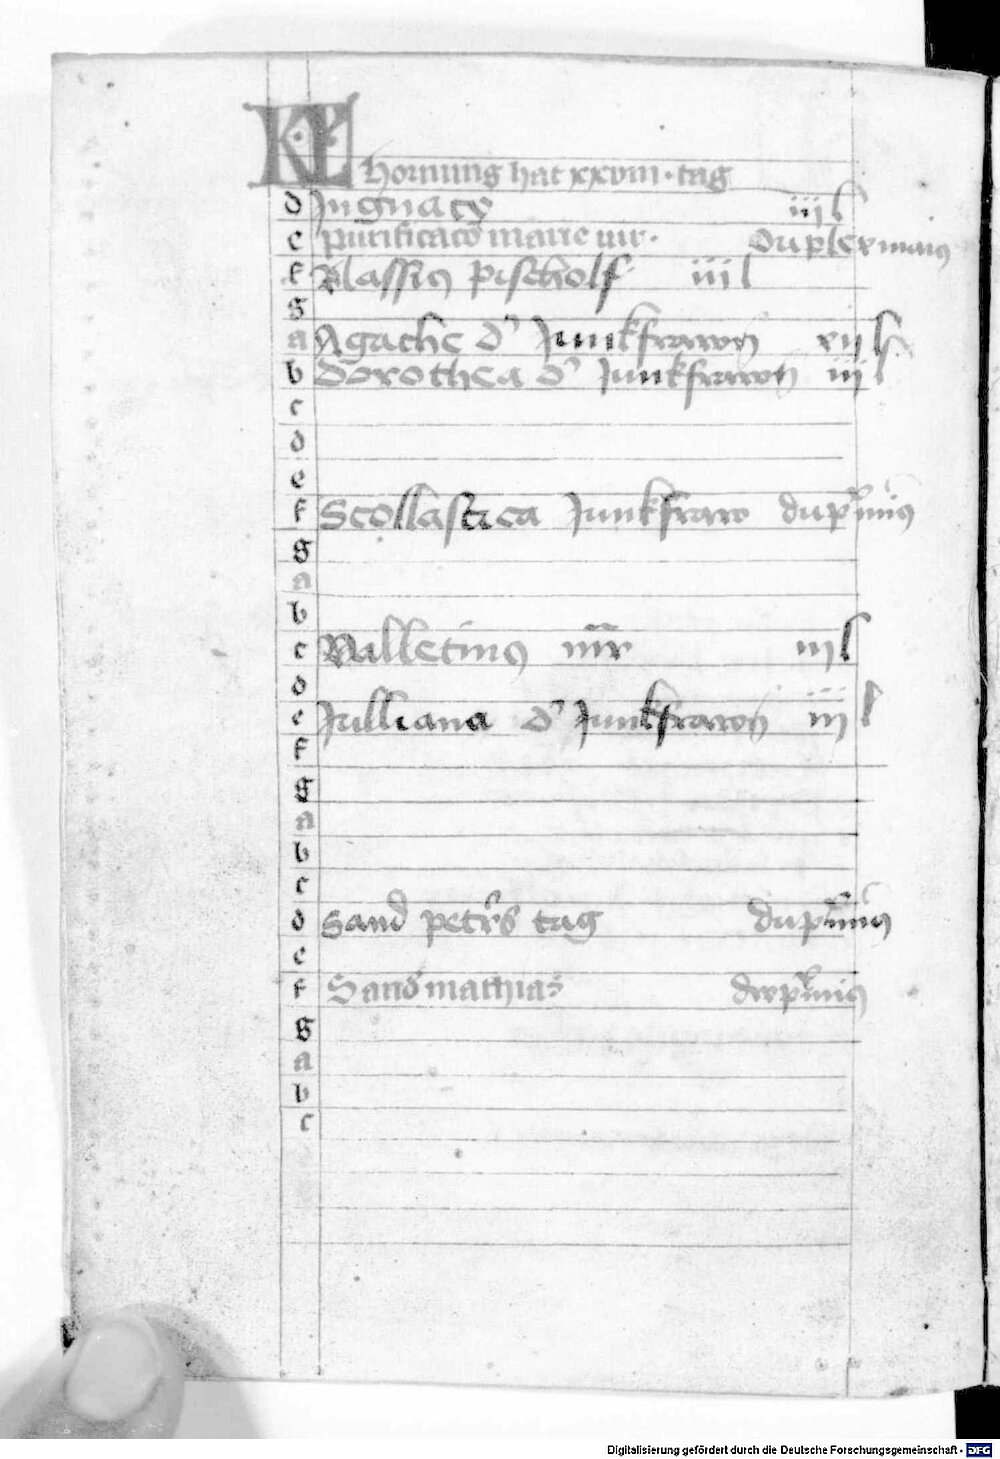 KL
Hornung hat xxviii · tag
d Ingnacy iij l
e purificatio marie vir · duplex maius
f Blassius pischolf iij l
g
a Agathe d' Junkfrawn xij l
b dorothea d' Junkfrawn iij l
c
d
e
f Scollastica Junkfraw dupl minus
g
a
b
c Valletinus mr iij l
d
e Julliana d' Junkfrawn iij l
f
g
a
b
c
d Sand peters tag dupl minus
e
f Sand mathias dupl minus
g
a
b
c
Digitalisierung gefördert durch die Deutsche Forschungsgemeinschaft - DFG